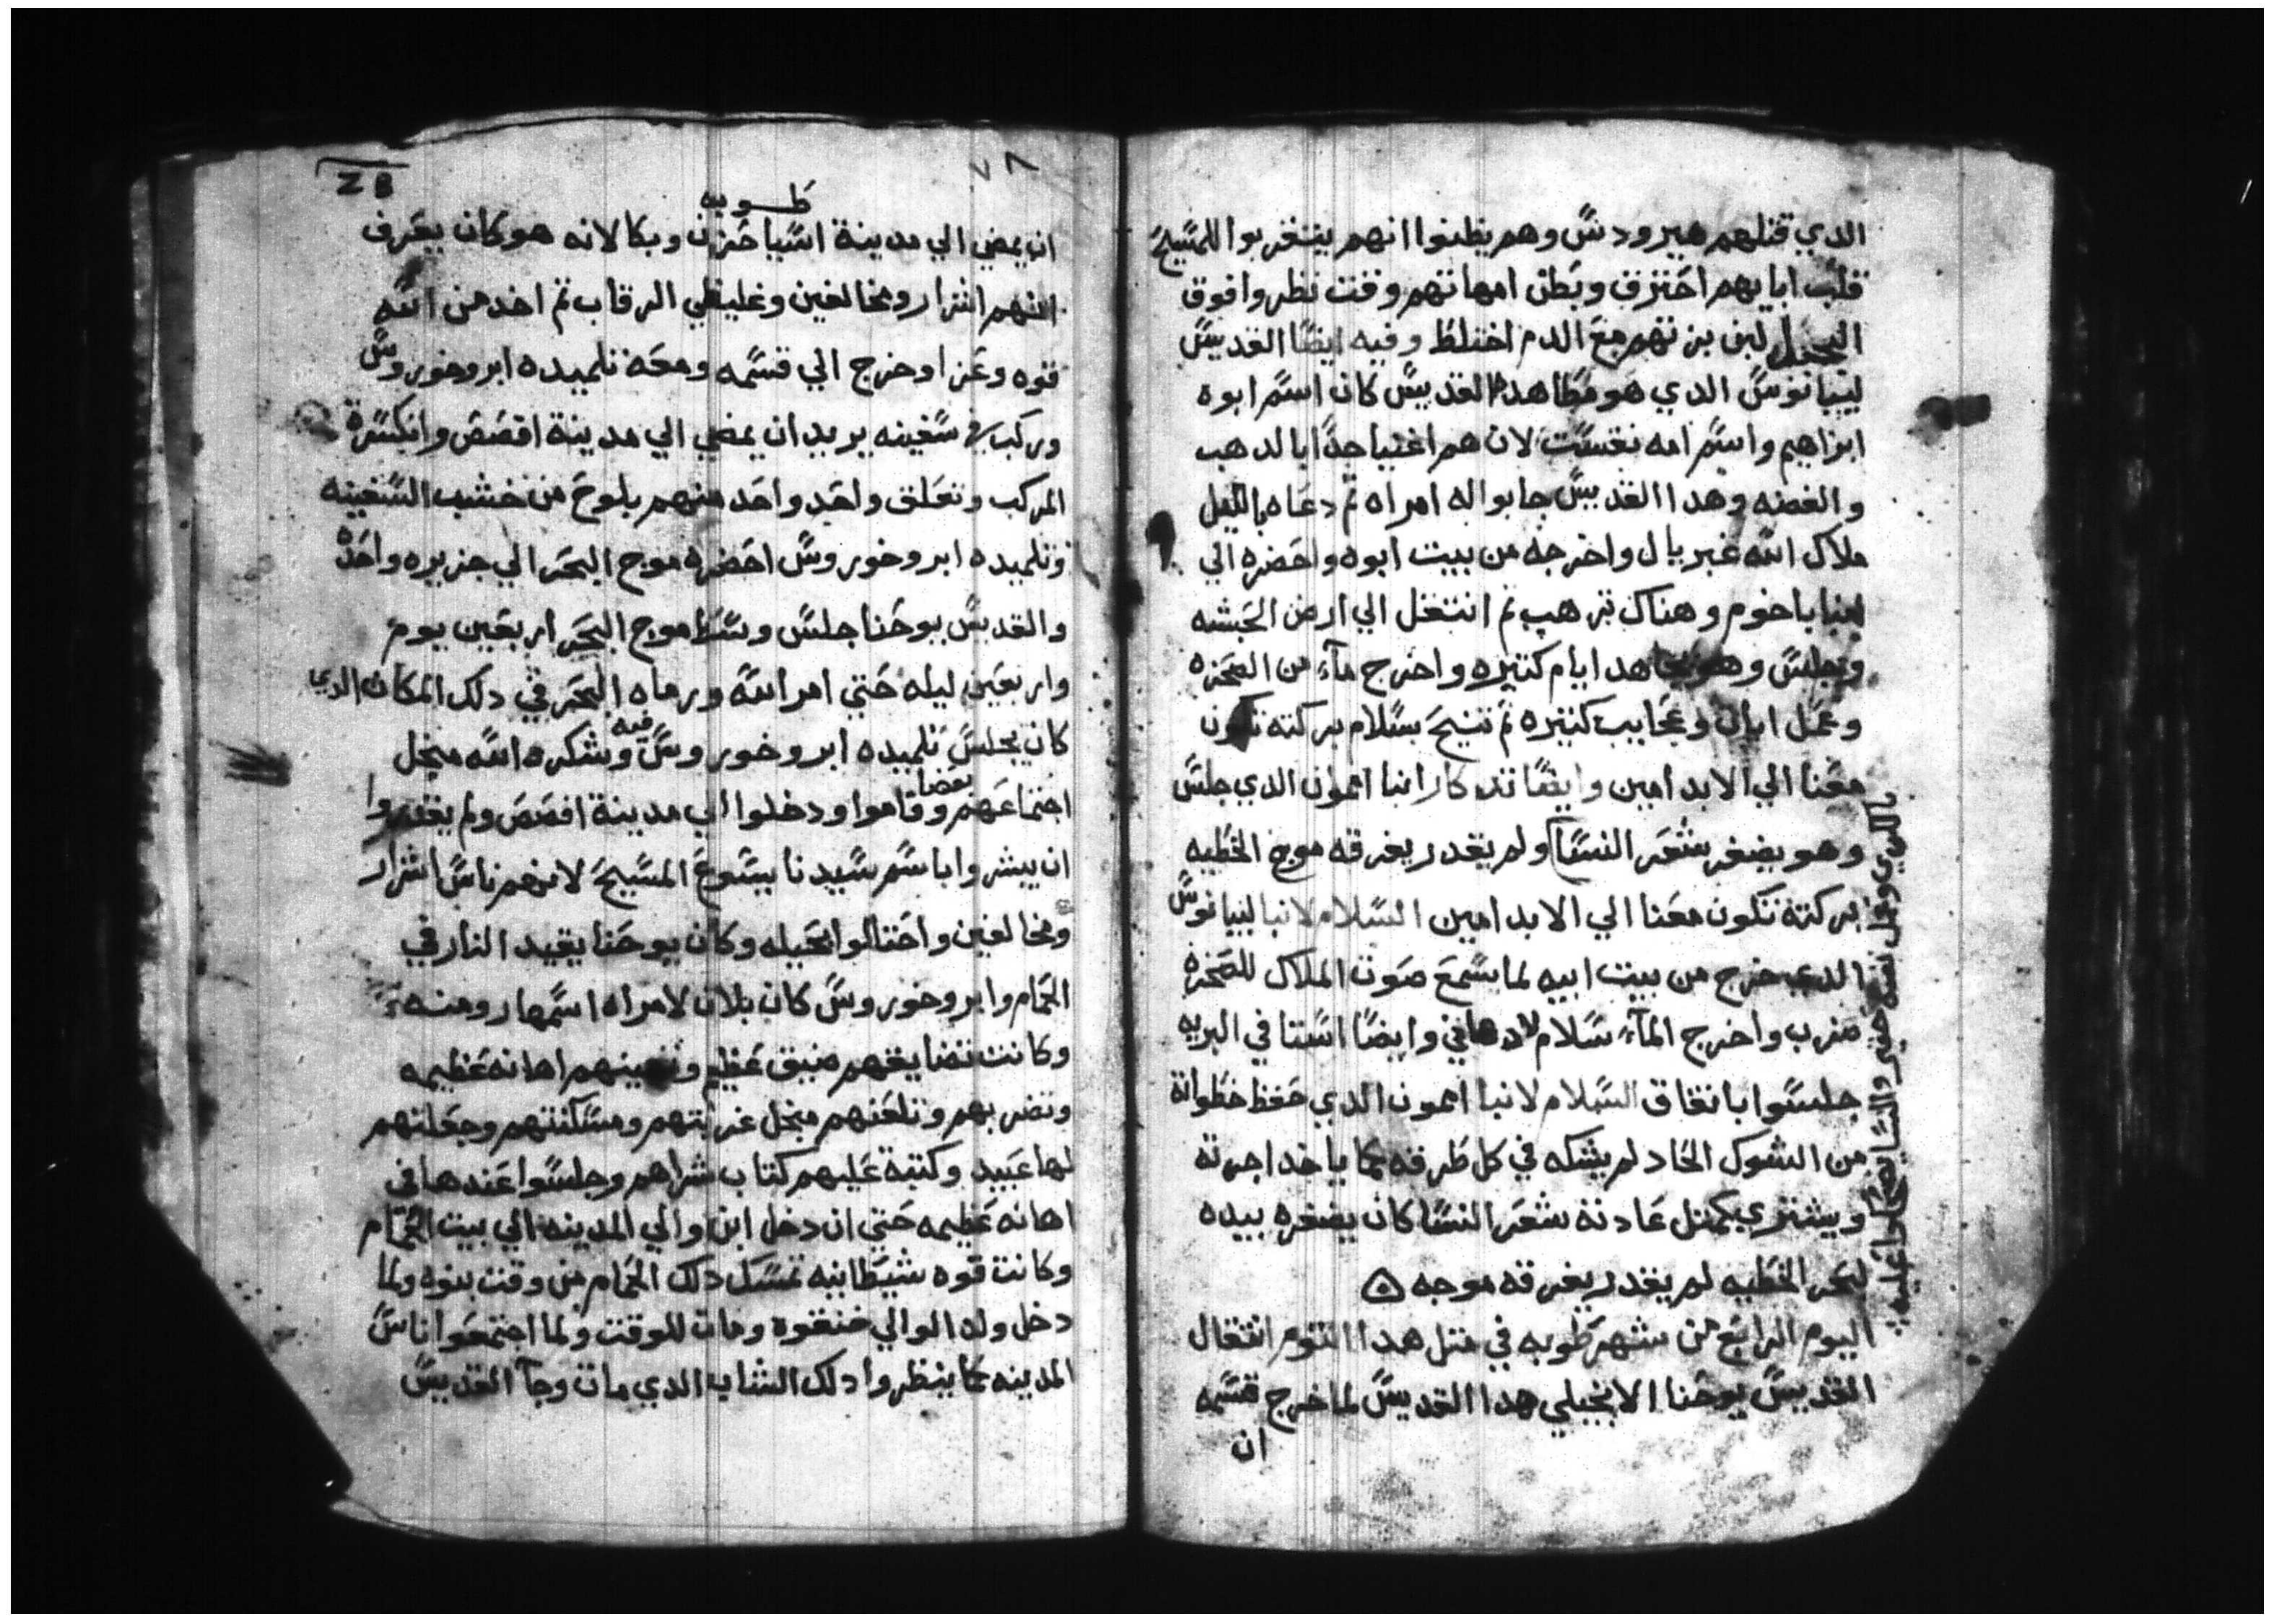 الدي قتلهم هيرودس وهم يظنوا انهم يتغربوا للمسيح
قلب ابايهم احترق وبطن امهاتهم وقت نظروا فوق
لبن بزتهم مع الدم اختلط وفيه ايضا القديس
ليبانوس الدي هو مطا هدا القديس كان اسم ابوه
ابراهيم واسم امه نفست لان هم اغنيا جدا بالدهب
والفضه وهدا القديس جابوا له امراه تم دعاه بالليل
ملاك الله غبريال واخرجه من بيت ابوه واحضره الي
انبا باخوم وهناك ترهب تم انتقل الي ارض الحبشه
وجلس وهو يجاهد ايام كتيره واخرج مآء من الصخره
وعمل ايات وعجايب كتيره تم تنيح بسلام بركته تكون
معنا الي الابد امين وايضا تدكار انبا امون الدي جلس
وهو يضفر شعر النسا ولم يقدر يغرقه موج الخطيه
بركته تكون معنا الي الابد امين السلام لانبا ليبانوس
الدي خرج من بيت ابيه لما سمع صوت الملاك للصخره
ضرب واخرج المآء سلام وايضا استا في البريه
جلسوا باتفاق السلام لانبا امون الدي حفظ خطواته
من الشوك الحاد لم يشكه في كل طرقه كما ياخد اجرته
ويشتري كمتل عادته شعر النسا كان يضفره بيده
لبحر الخطيه لم يقدر يغرقه موجه
اليوم الرابع من شهر طوبه في متل هدا اليوم انتقال
القديس يوحنا الانجيلي هدا القديس لما خرج قسمه
ان
٧٨
طوبه
ان يمضي الي مدينة اسيا حزن وبكا لانه هو كان يعرف
انهم اشرار ومخالفين وغليظي الرقاب تم اخد من الله
قوه وعزا وخرج الي قسمه ومعه تلميده ابروخوروس
وركب في سفينه يريد ان يمضي الي مدينة افصص وانكسرة
المركب وتعلق واحد واحد منهم بلوح من خشب السفينه
وتلميده ابروخوروس احضره موج البحر الي جزيره واحده
والقديس يوحنا جلس وسط موج البحر اربعين يوم
واربعين ليله حتي امر الله ورماه البحر في دلك المكان الدي
كان يجلس تلميده ابروخوروس فيه وشكره الله منجل
اجتماعهم بعضا وقاموا ودخلوا الي مدينة افصص ولم يقدروا
ان يبشروا باسم سيدنا يسوع المسيح لانهم ناس اشرار
ومخالفين واحتالوا بحيله وكان يوحنا يقيد النار في
الحمام وابروخوروس كان بلان لامراه اسمها رومنه
وكانت تضايقهم ضيق عظيم وتهينهم اهانه عظيمه
وتضربهم وتلعنهم منجل غربتهم ومسكنتهم وجعلتهم
لها عبيد وكتبة عليهم كتاب شراهم وجلسوا عندها في
اهانه عظيمه حتي ان دخل ابن والي المدينه الي بيت الحمام
وكانت قوه شيطانيه تمسك دلك الحمام من وقت بنوه ولما
دخل ولد الوالي خنقوه ومات للوقت ولما اجتمعوا ناس
المدينه كما ينظروا دلك الشاب الدي مات وجآ القديس